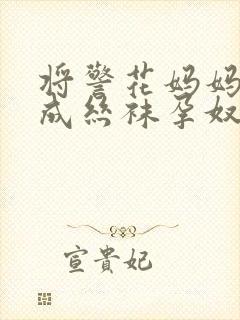 将警花妈妈
成丝袜孕奴
宣貴妃